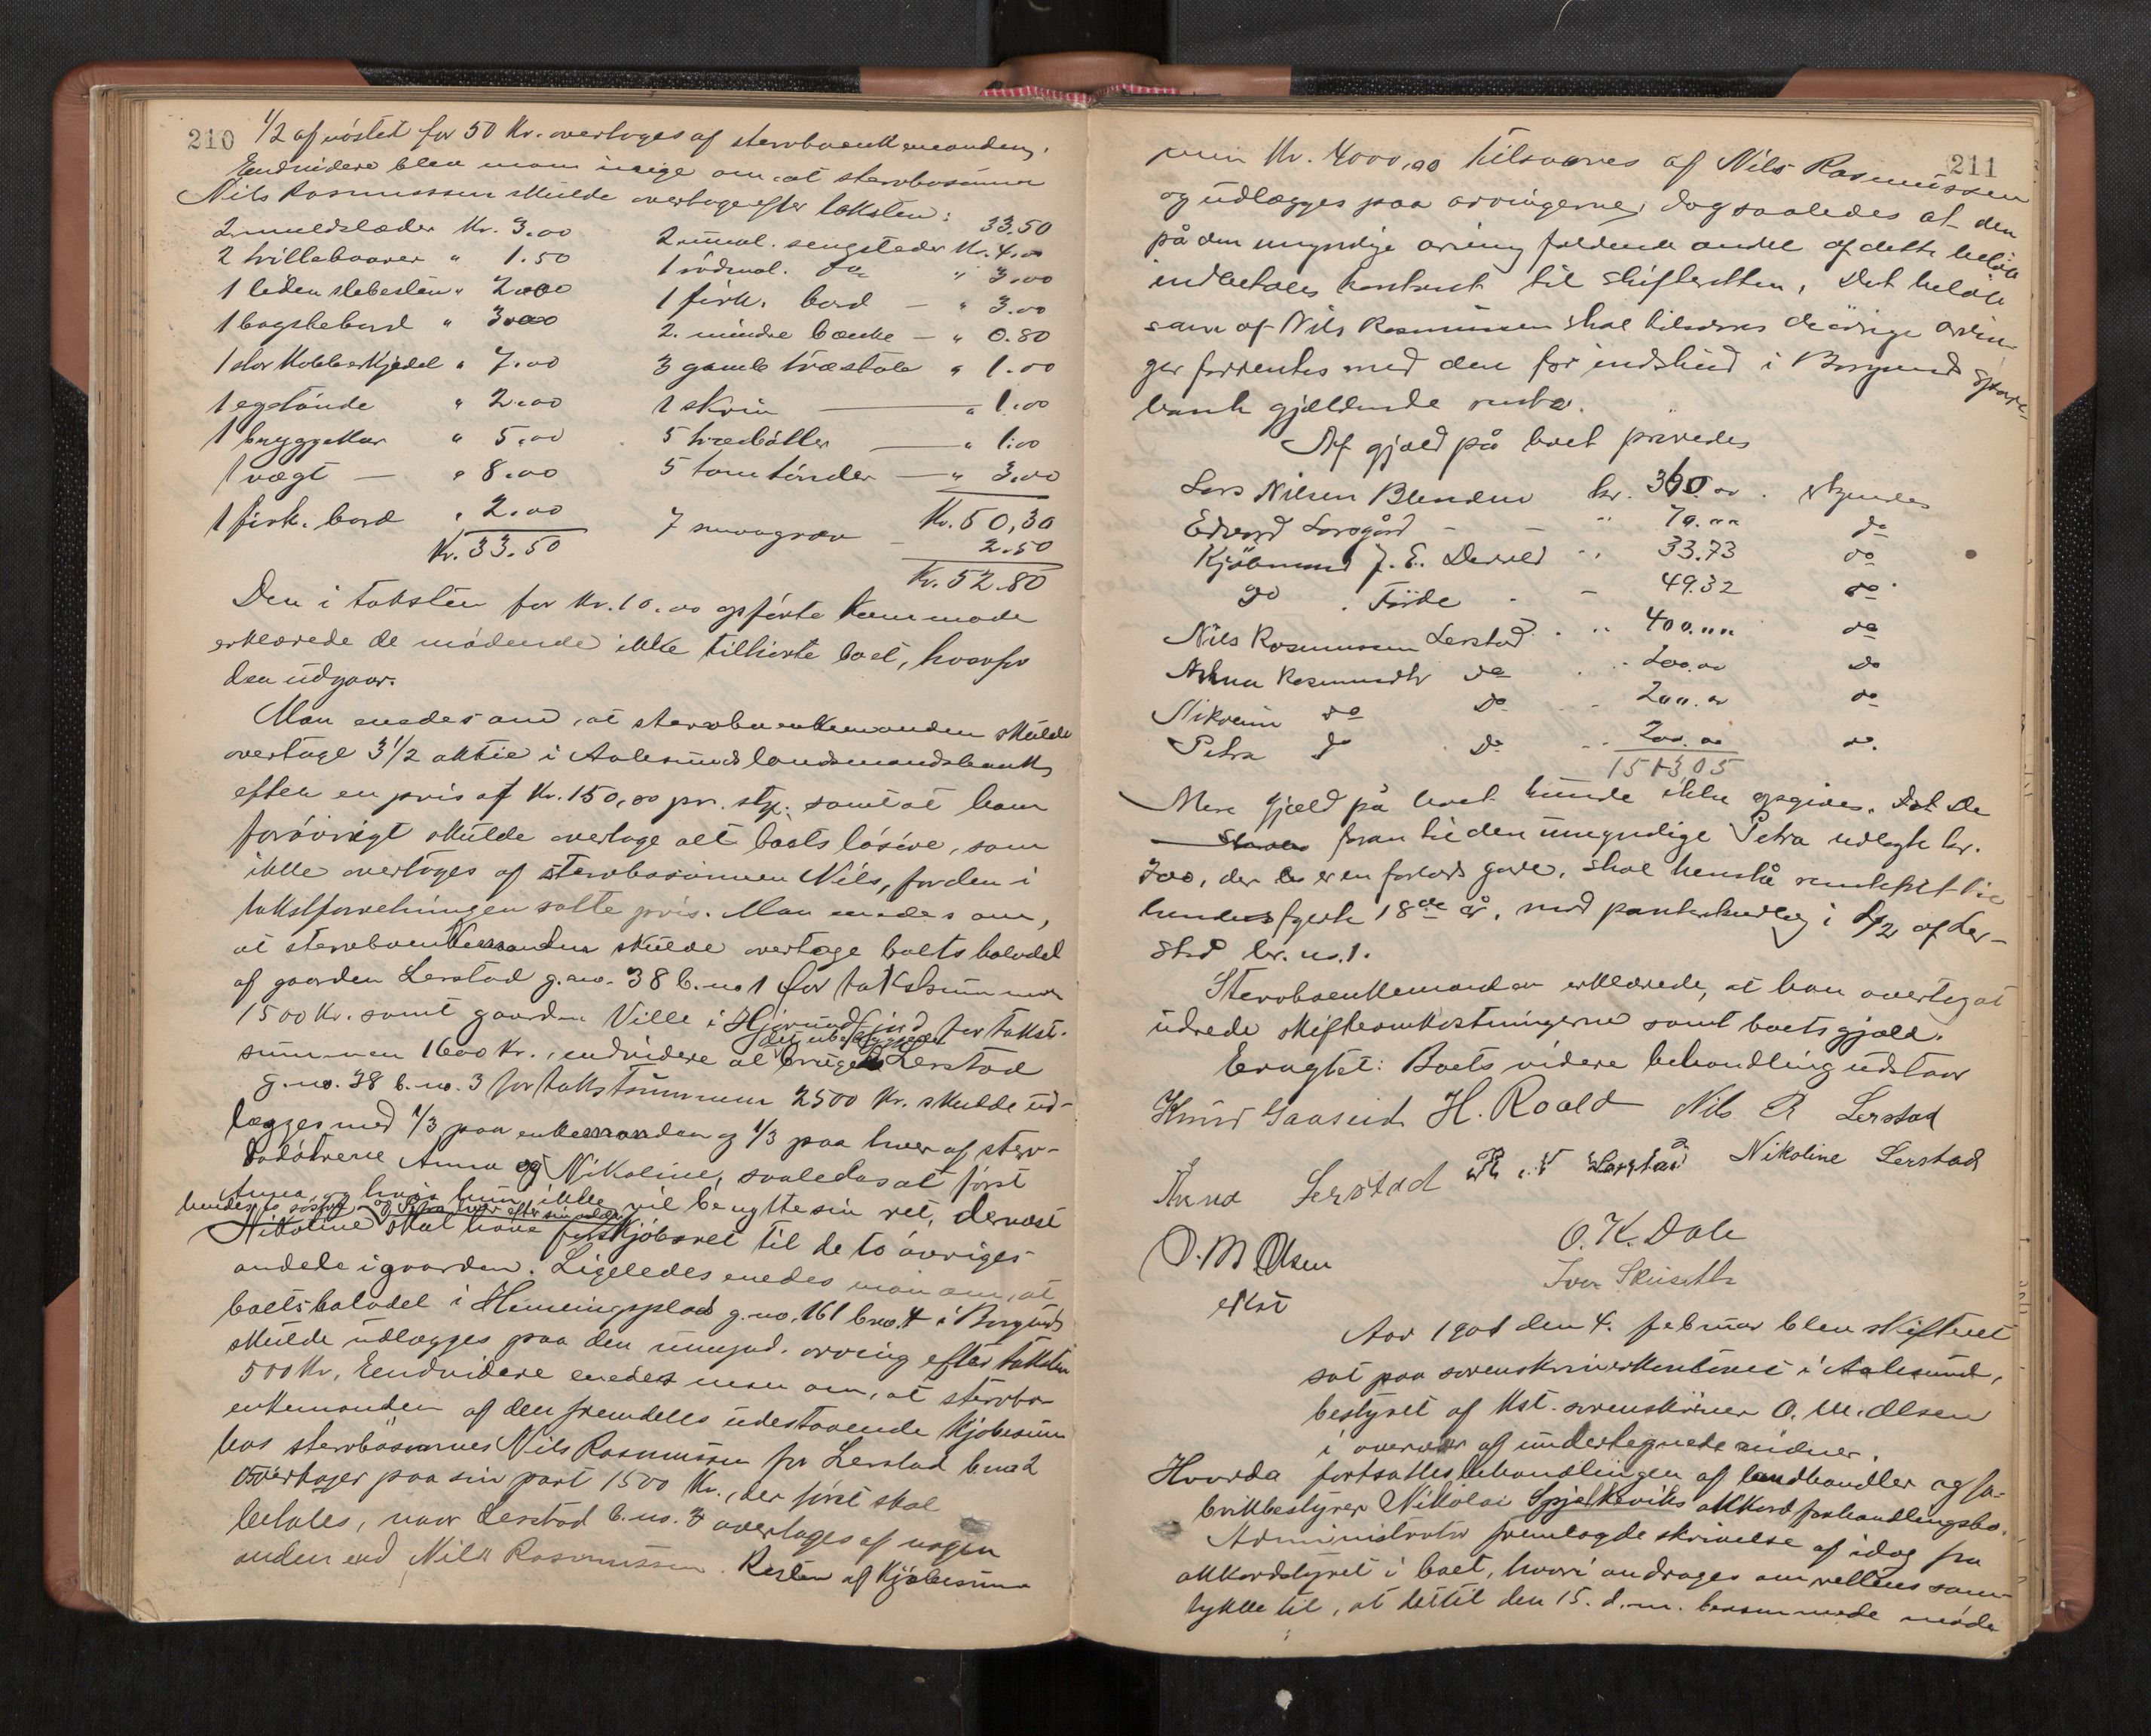 210
1/2 af nöstet for 50 Kr. overtages af sterboenkemanden.
Endvidere blev man enige om at sterbosönnen
Nils Rasmussen skulde overtage efter taksten:
2 muldslæder Kr. 3.00
2 trillebaarer " 1.50
1 liden slebesten " 2.00
1 bagstebord " 3.00
1 stor Kobberkjedel " 7.00
1 egetönde " 2.00
1 bryggekar " 5.00
1 vægt — " 8.00
1 firk. bord " 2.00
Kr. 33.50
33.50
2 umal. sengesteder Kr. 4.00
1 rödmal. do " 3.00
1 firk. bord — " 3.00
2 mindre bænke — " 0.80
3 gamle træstole " 1.00
1 skrin — " 1.00
5 træbötter — " 1.00
5 tomtönder — " 3.00
Kr. 50,30
7 — 2.50
Kr. 52.80
Den i taksten for Kr. 10.00 opförte Kommode
erklærede de mödende ikke tilhörte boet, hvorfor
den udgaar.
Man enedes om, at sterboenkemanden skulde
overtage 3 1/2 aktie i Aalesunds landmandsbank
efter en pris af Kr. 150,00 pr. stk. samt at han
forövrigt skulde overtage alt boets lösöre, som
ikke overtages af sterbosönnen Nils, for den i
takstforretningen satte pris. Man enedes om,
at sterboenkemanden skulde overtage boets halvdel
af gaarden Lerstad g.no. 38 b.no 1 for takstsummen
1500 Kr. samt gaarden Ville i Hjörundfjord for takst-
summen 1600 Kr., endvidere at det ubebyggede brug Lerstad
g.no. 38 b.no. 3 for takstsummen 2500 Kr. skulde ud-
lægges med 1/3 paa enkemanden og 1/3 paa hver af sterv-
bodötrene Anna og Nikoline, saaledes at först
Anna, og hvis hun ikke vil benytte sin ret, dernæst
hendes to söstre, og Petra hver efter sin alder
Nikoline skal have forkjöbsret til de to övriges
andele i gaarden. Ligeledes enedes man om, at
boets halvdel i Hemingsplads g.no. 161 b.no. 4 i Borgund
skulde udlægges paa den umynd. arving efter taksten
500 Kr. Endvidere enedes man om, at sterbo-
enkemanden af den fremdeles udestaaende Kjöbesum
hos sterbosönnen Nils Rasmussen for Lerstad b.no 2
overtager paa sin part 1500 Kr., der först skal
betales, naar Lerstad b.no. 3 overtages af nogen
anden end Nils Rasmussen. Resten af Kjöbesum-
211
men Kr. 4000,00 tilsvares af Nils Rasmussen
og udlægges paa arvingerne, dog saaledes at den
på den umyndige arving faldende andel af dette belöb
indbetales kontant til skifteretten. Det belöb
som af Nils Rasmussen skal tilsvares de övrige arvin-
ger forrentes med den for indskud i Borgund spare-
bank gjældende rente.
Af gjæld på boet prövedes
Lars Nilsen Blendem kr. 360.00. erkjendes
Edvard Larsgård — — " 70.00 do
Kjöbmand J. E. Devold " 33.73 do
do . Fride — 49.32 do
Nils Rasmussen Lerstad . " 400.00 do
Anna Rasmusdtr do . 200.00 do
Nikoline do do . 200.00 do
Petra do do " 200.00 do.
1513 05
Mere gjæld på boet kunde ikke opgives. Det De
foran til den umyndige Petra udlagte kr.
200, der er en forlods gave, skal henstå rentefrit til
hendes fyldte 18de år, mod pantesikkerhed i 1/2 af Ler-
stad br. no. 1.
Sterboenkemanden erklærede, at han overtog at
udrede skifteomkostningerne samt boets gjæld.
Eragtet: Boets videre behandling udstaar
Knud Gaaseid H. Roald Nils R Lerstad
Anna Lerstad R. N Lerstad Nikoline Lerstad
O. M Olsen O. K. Dale
kst Iver
Aar 1901 den 4. februar blev skifteret
sat paa sorenskriverkontoret i Aalesund,
bestyret af kst. sorenskriver O. M. Olsen
i overvær af undertegnede vidner.
Hvorda fortsattes behandlingen af landhandler og fa-
brikbestyrer Nikolai Spjelkaviks akkordforhandlingsbo.
Administrator fremlagde skrivelse af idag fra
akkordstyret i boet, hvori andrages om rettens sam-
tykke til, at det til den 15. d.m. berammede möde